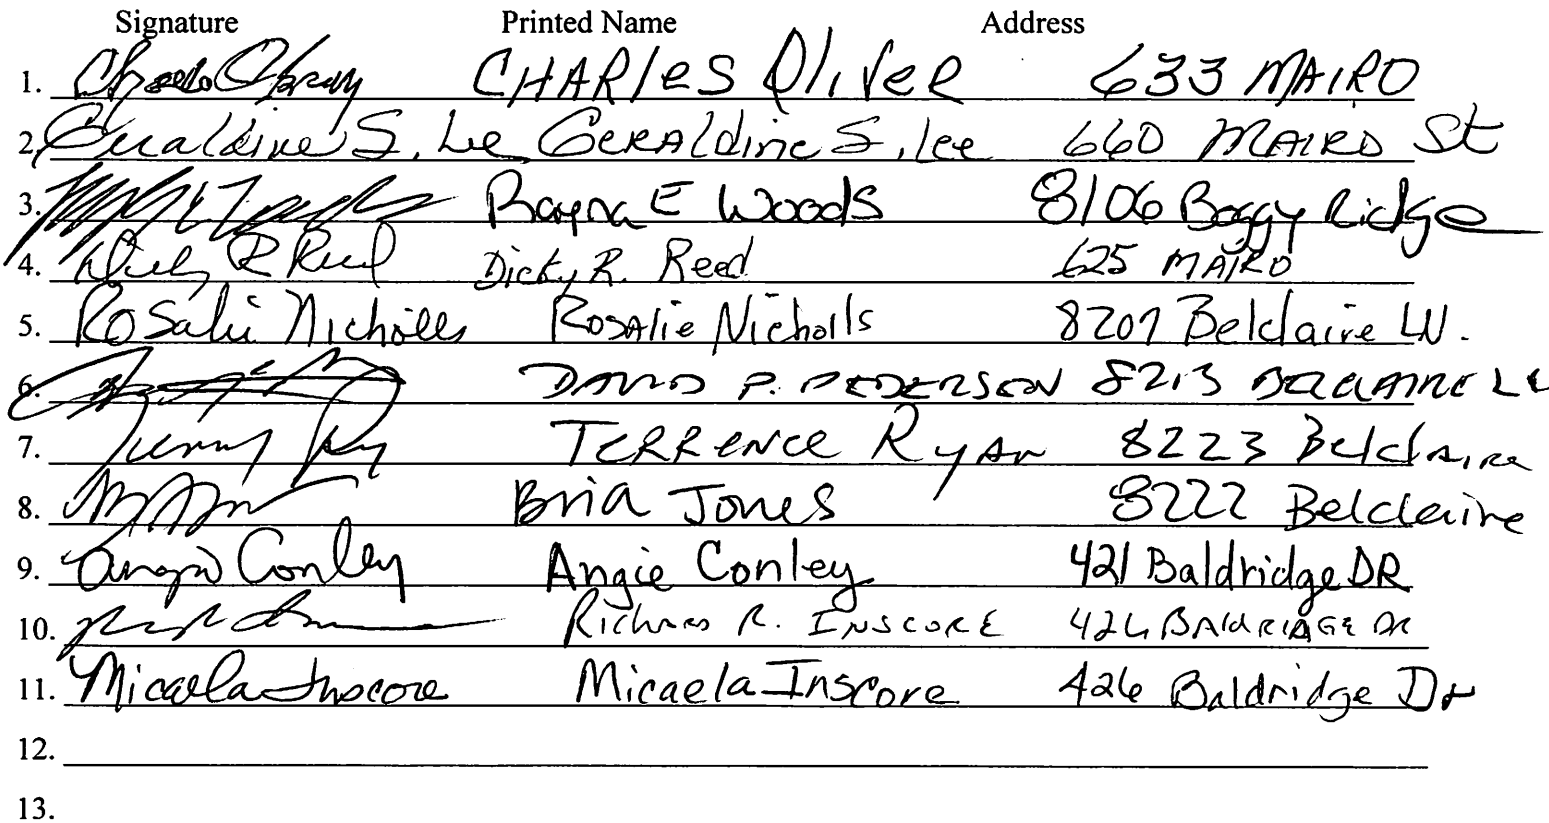 Signature Printed Name Address
1. CHARles Oliver 633 MAIRO
2. Geraldine S. Lee GERAldine S. lee 660 MAIRO St
3. Rayna E Woods 8106 Boggy Ridge
4. Dicky R Reed Dicky R. Reed 625 MAIRO
5. Rosalie Nicholls Rosalie Nicholls 8207 Belclaire LN.
6. DAVID P. PEDERSON 8213 BELCLAIRE LN
7. TERRENCE RYAN 8223 Belclaire
8. Bria Jones 8222 Belclaire
9. Angie Conley Angie Conley 421 Baldridge DR
10. Richard R. INSCORE 426 BALDRIDGE DR
11. Micaela Inscore Micaela Inscore 426 Baldridge Dr
12.
13.